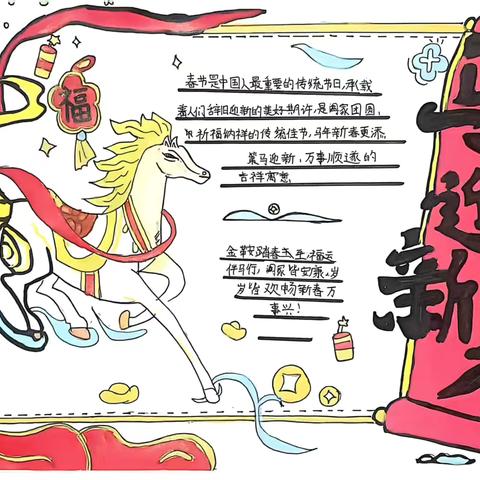 福
春节是中国人最重要的传统节日,承载
着人们辞旧迎新的美好期许,是阖家团圆,
祈福纳祥的传统佳节,马年新春更添
策马迎新,万事顺遂的
吉祥寓意
金鞍踏春 福运
伴马行,阖家皆安康,岁
岁皆欢畅新春万
事兴!
马
迎
新